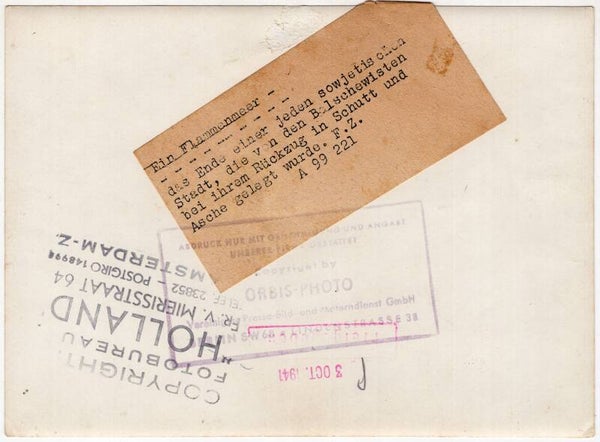 Ein Flammenmeer -
das Ende einer jeden sowjetischen
Stadt, die von den Bolschewisten
bei ihrem Rückzug in Schutt und
Asche gelegt wurde. F.Z.
A 99 221
ABDRUCK NUR MIT UND ANGABE
UNSERER GESTATTET
Copyright by
ORBIS-PHOTO
Presse-Bild- und Materndienst GmbH
SW 68 LINDENSTRASSE 38
3 OCT. 1941
COPYRIGHT
FOTOBUREAU
"HOLLAND
FR. V. MIERISSTRAAT 64
TELEF. 23852 POSTGIRO 148998
MSTERDAM-Z.